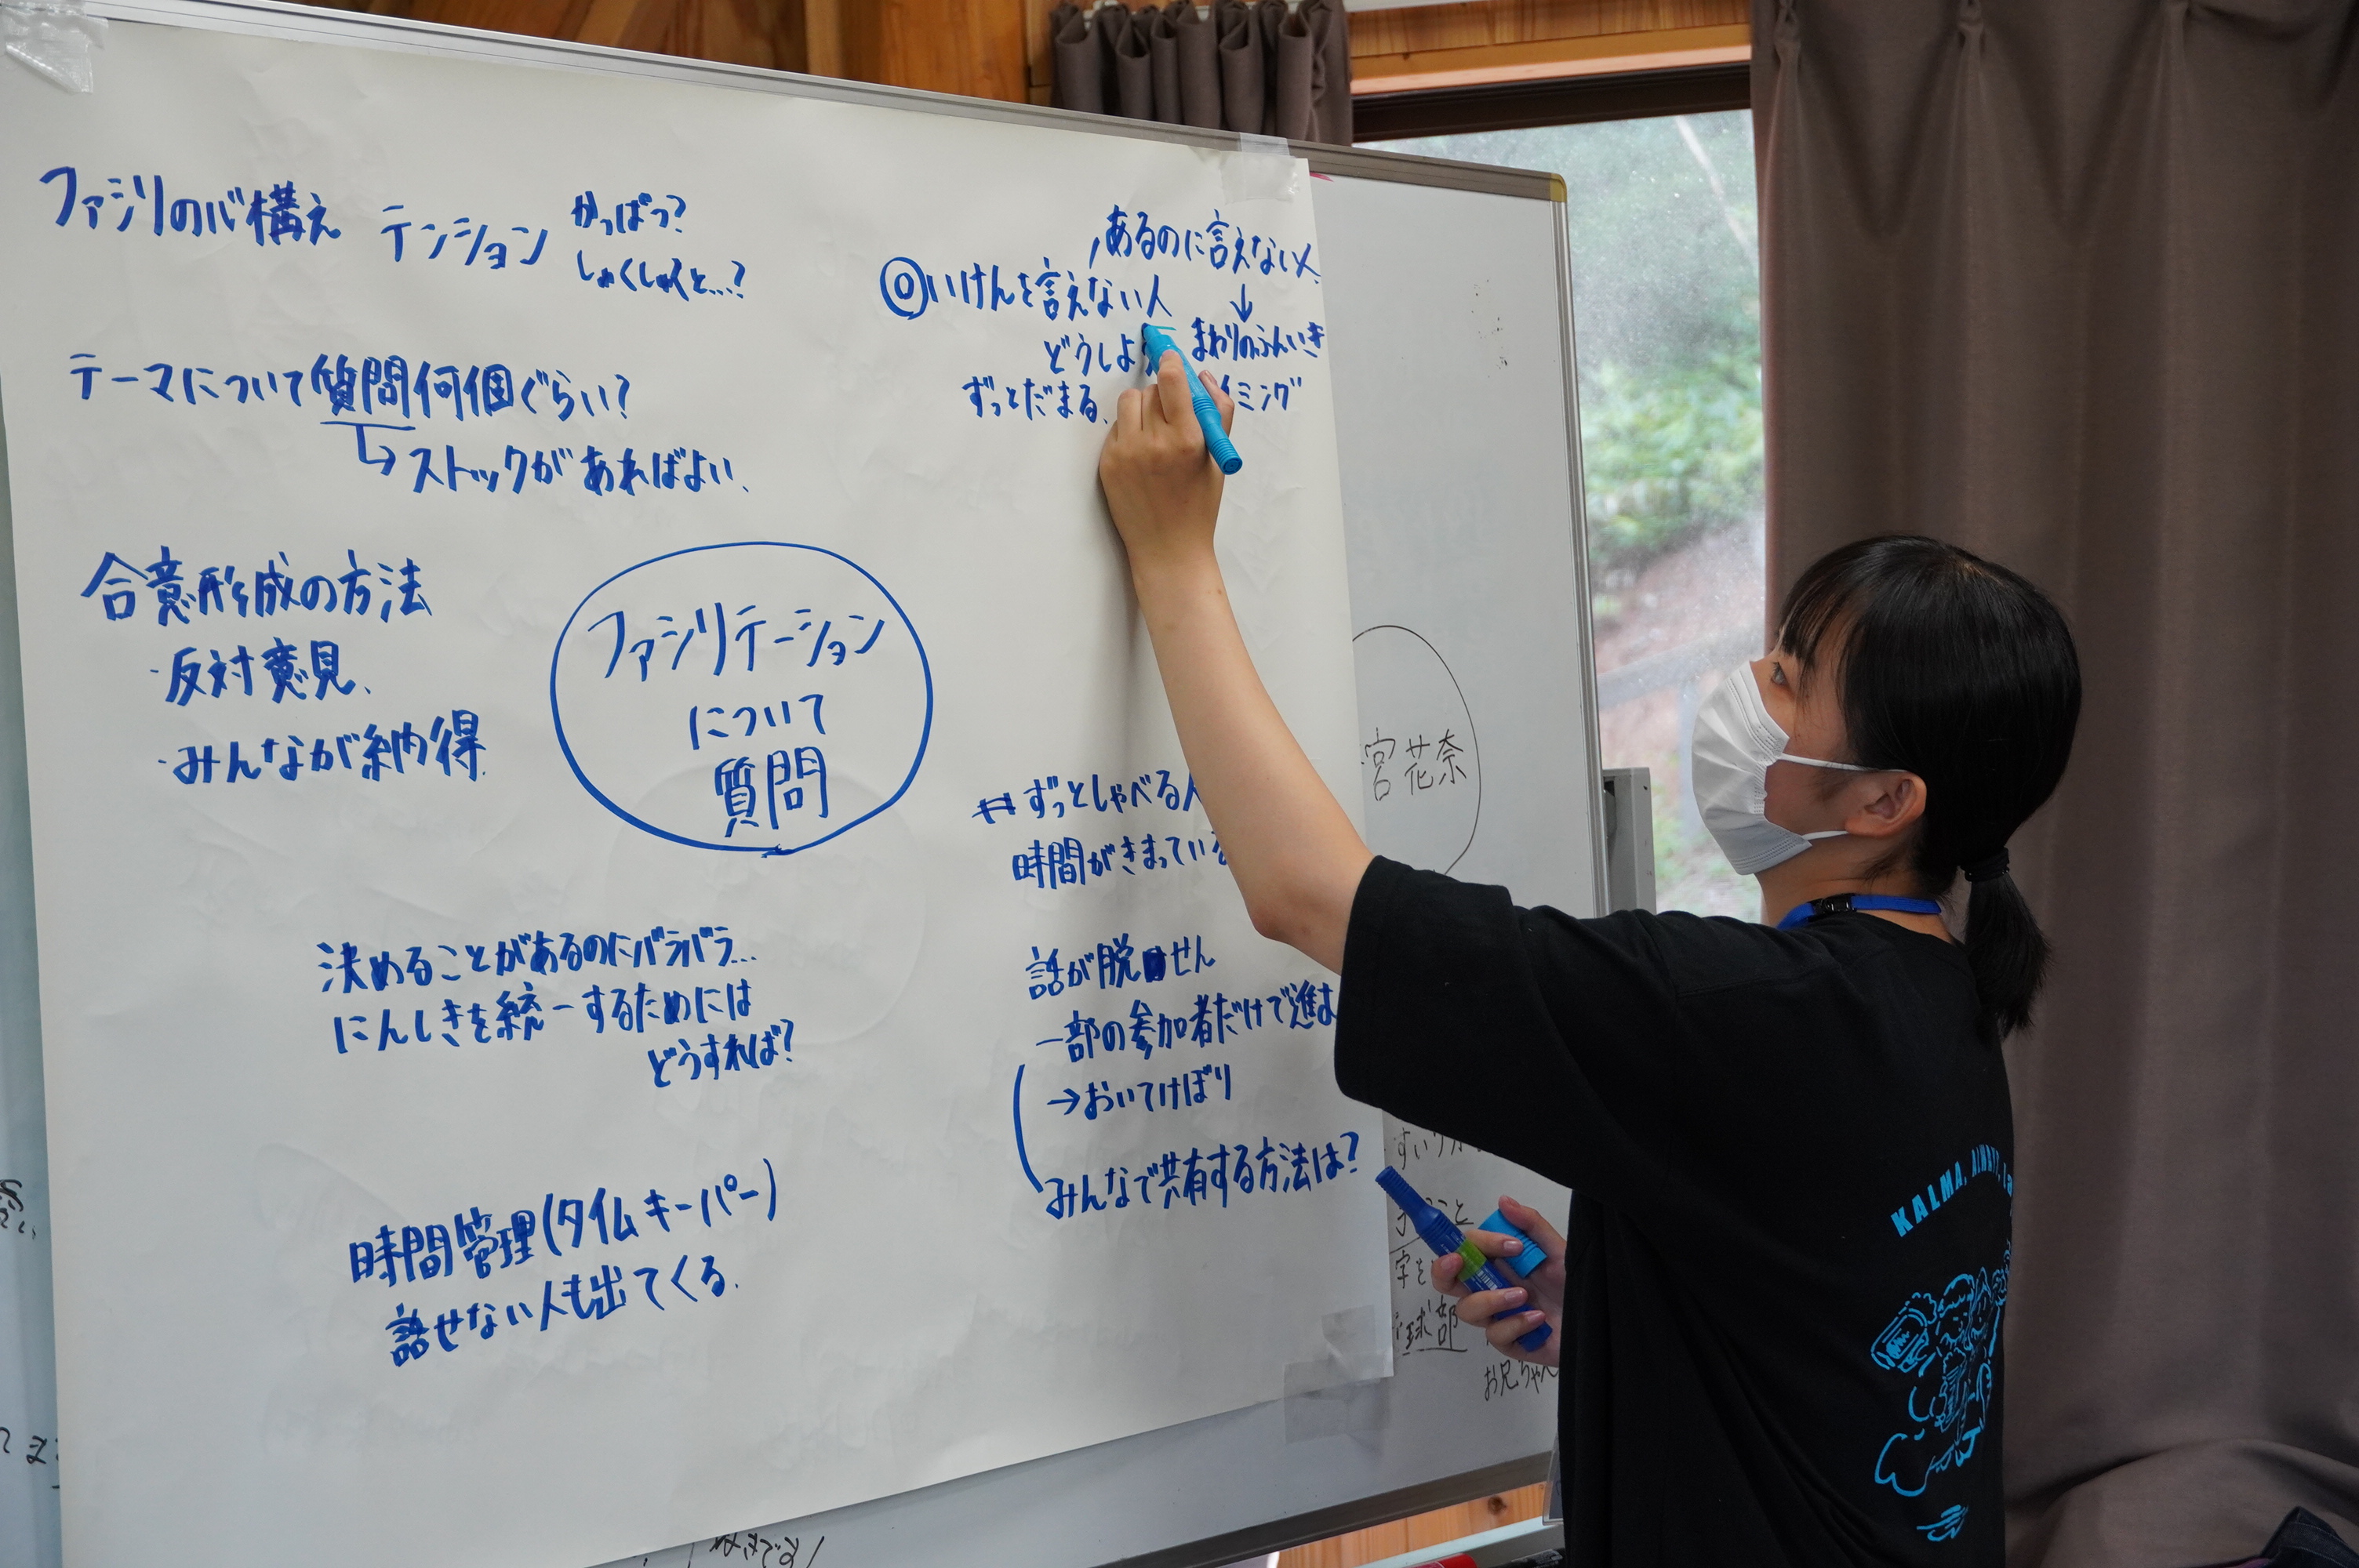 ファシリの心構え テンション かっぱつ?
しゅくしゅくと…?
テーマについて質問何個ぐらい?
→ストックがあればよい、
合意形成の方法
・反対意見、
・みんなが納得
ファシリテーション
について
質問
決めることがあるのにバラバラ…
にんしきを統一するためには
どうすれば?
時間管理(タイムキーパー)
話せない人も出てくる、
あるのに言えない人、
↓
◎いけんを言えない人
まわりのふんいき
どうしよ
ミング
ずっとだまる、
#ずっとしゃべる人
時間がきまっている
話が脱せん
一部の参加者だけで進
→おいてけぼり
みんなで共有する方法は?
宮花奈
球部
お兄ちゃん
KALMA.